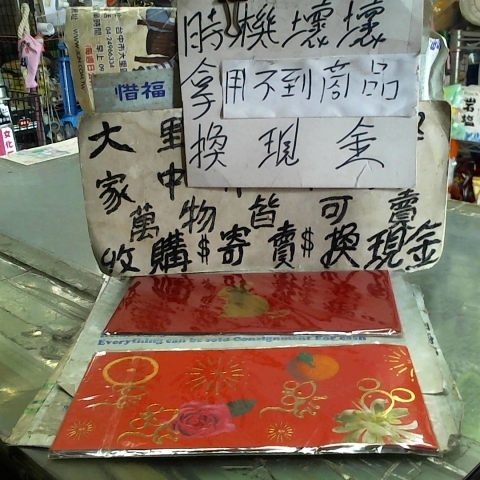 時機壞壞
拿用不到商品
換現金
惜福
台中市大里
大里
家中
萬物皆可賣
收購$寄賣$換現金
Everything can be sold Consignment For Cash
岩塩